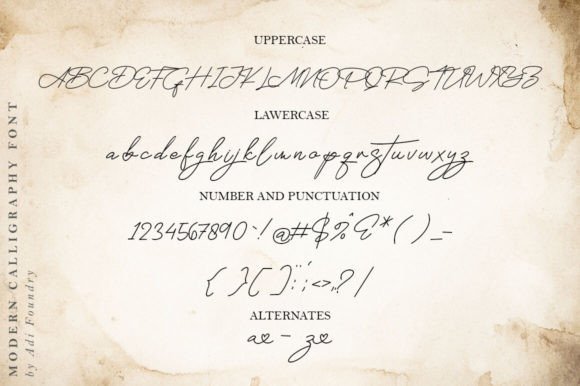 UPPERCASE
ABCDEFGHIJKLMNOPQRSTUVWXYZ
LAWERCASE
abcdefghijklmnopqrstuvwxyz
NUMBER AND PUNCTUATION
1234567890~!@#$%^&*()_-
{}[]:;<>,.?/
ALTERNATES
ae - ze
MODERN CALLIGRAPHY FONT
by Adi Foundry